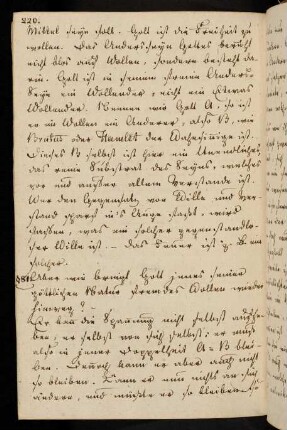 220.
Mittel seyn soll. Gott ist die Freiheit zu
wollen. Das Andersseyn Gottes beruht
nicht blos auf Wollen, sondern besteht da-
rin. Gott ist in seinem Anders-
Seyn ein Wollender, nicht ein Etwas
Wollender. Nennen wir Gott A. so ist
er im Wollen ein Anderer, also B, wie
oder Hamlet der Wahnsinnige ist.
Dieses B selbst ist hier ein Unendliches
das reine Substrat des Seyns, welches
vor und außer allem Verstande ist.
Wer den Gegensatz von Wille und Ver-
stand scharf in's Auge faßt, wird
was ein solcher gegenstandlo-
ser Wille ist. — das ist z. B. ein
solcher.
Aber wie bringt Gott jenes seiner
göttlichen Natur fremdes Wollen wieder
hinweg?
Er kann die Spannung nicht selbst aufhe-
ben, er selbst von sich selbst; er muß
also in jener Doppelheit A = B blei-
ben. Dennoch kann er aber auch nicht
so bleiben. Kann er nun nichts an sich
ändern, und müßte er so bleiben